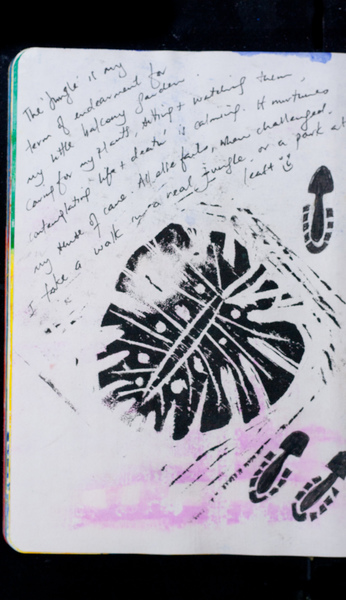 The 'jungle' is my
term of endearment for
my little balcony garden.
Caring for my plants, sitting + watching them,
contemplating 'life + death' is calming. It nurtures
my sense of care. All else fails, when challenged,
I take a walk in a real jungle or a park at
least